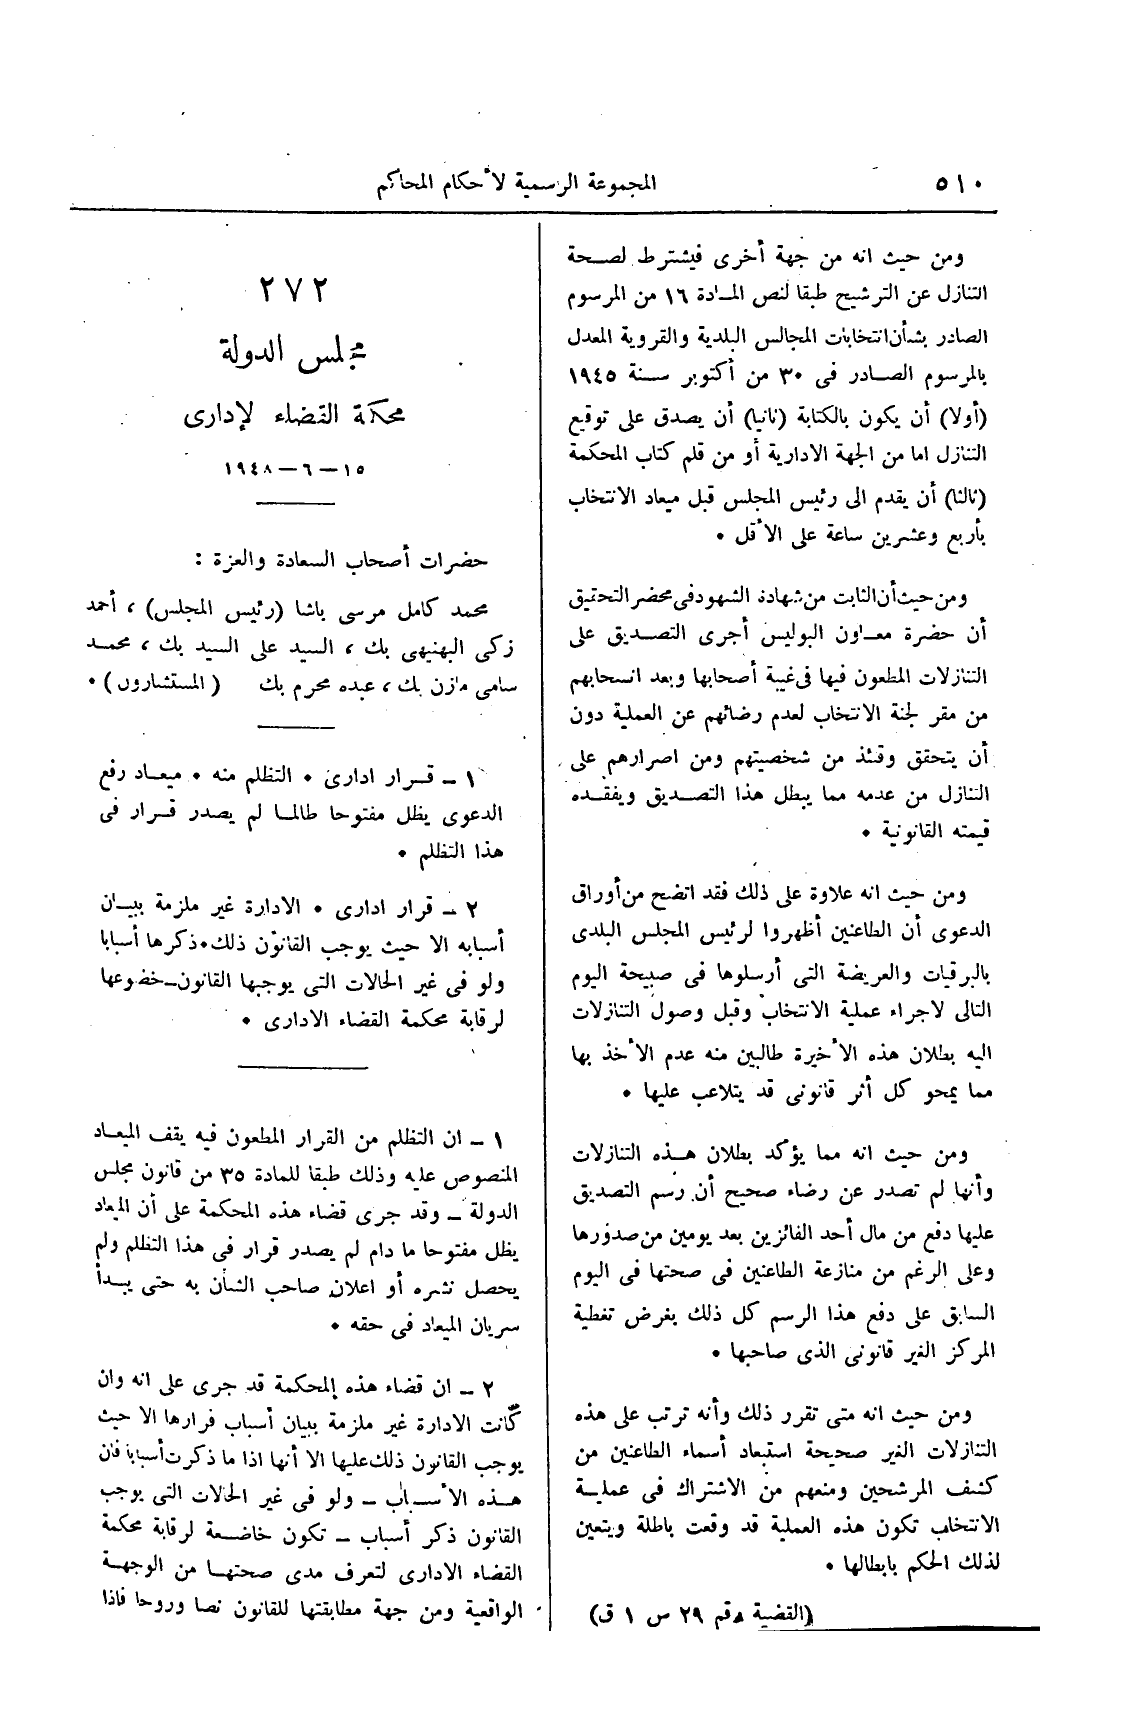 ٥١٠
المجموعة الرسمية لأحكام المحاكم
ومن حيث انه من جهة أخرى فيشترط لصحة
التنازل عن الترشيح طبقا لنص المادة ١٦ من المرسوم
الصادر بشأن انتخابات المجالس البلدية والقروية المعدل
بالمرسوم الصادر فى ٣٠ من أكتوبر سنة ١٩٤٥
(أولا) أن يكون بالكتابة (ثانيا) أن يصدق على توقيع
التنازل اما من الجهة الادارية أو من قلم كتاب المحكمة
(ثالثا) أن يقدم الى رئيس المجلس قبل ميعاد الانتخاب
بأربع وعشرين ساعة على الأقل ٠
ومن حيث أن الثابت من شهادة الشهود فى محضر التحقيق
أن حضرة معاون البوليس أجرى التصديق على
التنازلات المطعون فيها فى غيبة أصحابها وبعد انسحابهم
من مقر لجنة الانتخاب لعدم رضائهم عن العملية دون
أن يتحقق وقتئذ من شخصيتهم ومن اصرارهم على
التنازل من عدمه مما يبطل هذا التصديق ويفقده
قيمته القانونية ٠
ومن حيث انه علاوة على ذلك فقد اتضح من أوراق
الدعوى أن الطاعنين أظهروا لرئيس المجلس البلدى
بالبرقيات والعريضة التى أرسلوها فى صبيحة اليوم
التالى لاجراء عملية الانتخاب وقبل وصول التنازلات
اليه بطلان هذه الأخيرة طالبين منه عدم الأخذ بها
مما يمحو كل أثر قانونى قد يتلاعب عليها ٠
ومن حيث انه مما يؤكد بطلان هذه التنازلات
وأنها لم تصدر عن رضاء صحيح أن رسم التصديق
عليها دفع من مال أحد الفائزين بعد يومين من صدورها
وعلى الرغم من منازعة الطاعنين فى صحتها فى اليوم
السابق على دفع هذا الرسم كل ذلك بغرض تغطية
المركز الغير قانونى الذى صاحبها ٠
ومن حيث انه متى تقرر ذلك وأنه ترتب على هذه
التنازلات الغير صحيحة استبعاد أسماء الطاعنين من
كشف المرشحين ومنعهم من الاشتراك فى عملية
الانتخاب تكون هذه العملية قد وقعت باطلة ويتعين
لذلك الحكم بابطالها ٠
(القضية رقم ٢٩ س ١ ق)
٢٧٢
مجلس الدولة
محكمة القضاء لإدارى
١٥ – ٦ – ١٩٤٨
حضرات أصحاب السعادة والعزة :
محمد كامل مرسى باشا (رئيس المجلس) ، أحمد
زكى البهنيهى بك ، السيد على السيد بك ، محمد
سامى مازن بك ، عبده محرم بك (المستشارون) ٠
١ – قرار ادارى ٠ التظلم منه ٠ ميعاد رفع
الدعوى يظل مفتوحا طالما لم يصدر قرار فى
هذا التظلم ٠
٢ – قرار ادارى ٠ الادارة غير ملزمة ببيان
أسبابه الا حيث يوجب القانون ذلك ٠ ذكرها أسبابا
ولو فى غير الحالات التى يوجبها القانون – خضوعها
لرقابة محكمة القضاء الادارى ٠
١ – ان التظلم من القرار المطعون فيه يقف الميعاد
المنصوص عليه وذلك طبقا للمادة ٣٥ من قانون مجلس
الدولة – وقد جرى قضاء هذه المحكمة على أن الميعاد
يظل مفتوحا ما دام لم يصدر قرار فى هذا التظلم ولم
يحصل نشره أو اعلان صاحب الشأن به حتى يبدأ
سريان الميعاد فى حقه ٠
٢ – ان قضاء هذه المحكمة قد جرى على انه وان
كانت الادارة غير ملزمة ببيان أسباب قرارها الا حيث
يوجب القانون ذلك عليها الا أنها اذا ما ذكرت أسبابا فان
هذه الأسباب – ولو فى غير الحالات التى يوجب
القانون ذكر أسباب – تكون خاضعة لرقابة محكمة
القضاء الادارى لتعرف مدى صحتها من الوجهة
الواقعية ومن جهة مطابقتها للقانون نصا وروحا فاذا